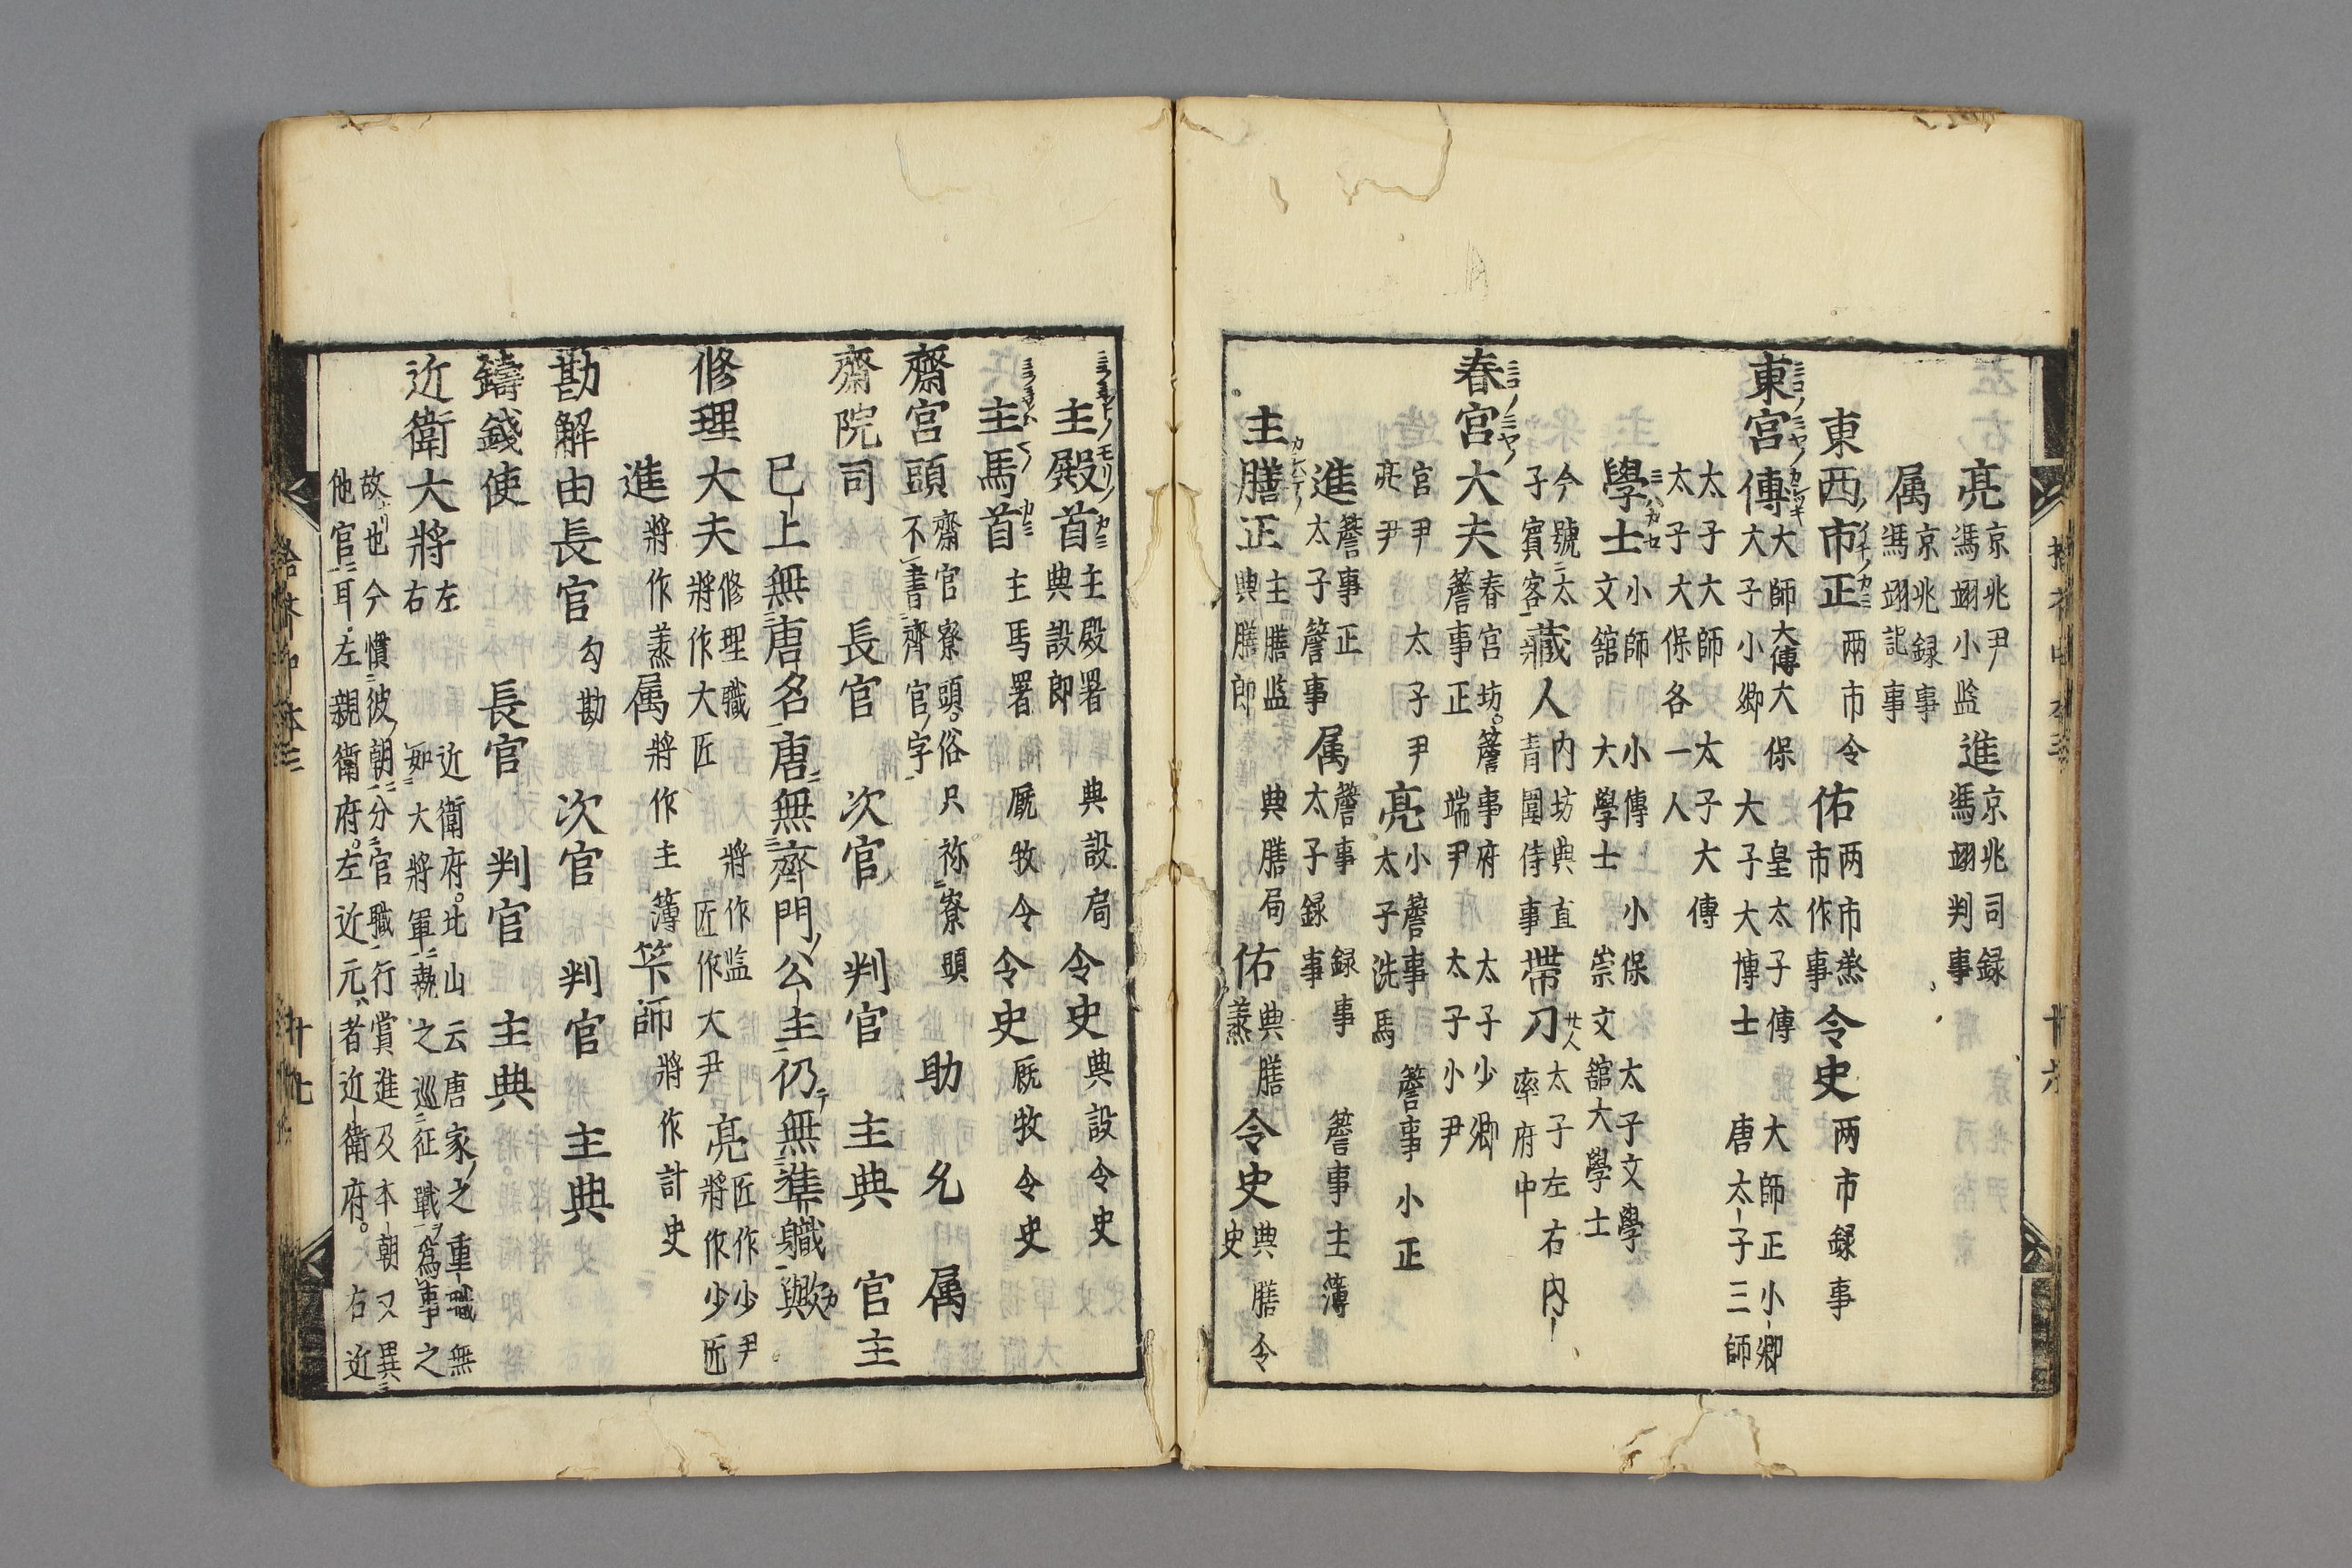 亮 京兆尹 馮翊小監 進 京兆司録 馮翊判事
属 京兆録事 馮翊記事
東西市正 两市令 佑 两市丞 市作事 令史 两市録事
東宮傅 大師 大傅 大保 大子小卿 皇太子傅 大子大博士 大師正小卿 唐太子三師
太子大師 太子大傅 太子大保各一人
學士 小師 小傅 小保 太子文學 文舘大學士 崇文舘大學士
今號太子賓客 藏人 内坊典直 青闈侍事 帯刀 廿人 太子左右内 率府中
春宮大夫 春宮坊。詹事府 太子少卿 詹事正 端尹 太子小尹
宮尹 太子尹 亮 小詹事 詹事小正 亮尹 太子洗馬
進 詹事正 太子詹事 属 詹事録事 詹事主薄 太子録事
主膳正 主膳监 典膳局 典膳郎 佑 典膳丞 令史 典膳令史
主殿首 主殿署 典設局 典設郎 令史 典設令史
主馬首 主馬署 厩牧令 令史 厩牧令史
齋宮頭 齋官寮頭。俗只称寮頭 不書齊官字 助 允 属
齋院司 長官 次官 判官 主典 官主
已上無唐名唐無齊門公主仍無準職歟
修理大夫 修理職 將作监 將作大匠 匠作大尹 亮 匠作少尹 將作少匠
進 將作丞 属 將作主簿 筭師 將作計史
勘解由長官 勾勘 次官 判官 主典
鑄錢使 長官 判官 主典
近衛大將 左右 近衛府。北山云唐家之重職無如大將軍親之巡征戰爲事之
故也今慣彼朝分官職行賞進及本朝又異
他官耳左親衛府。左近元者近衛府。右近
十六
十七